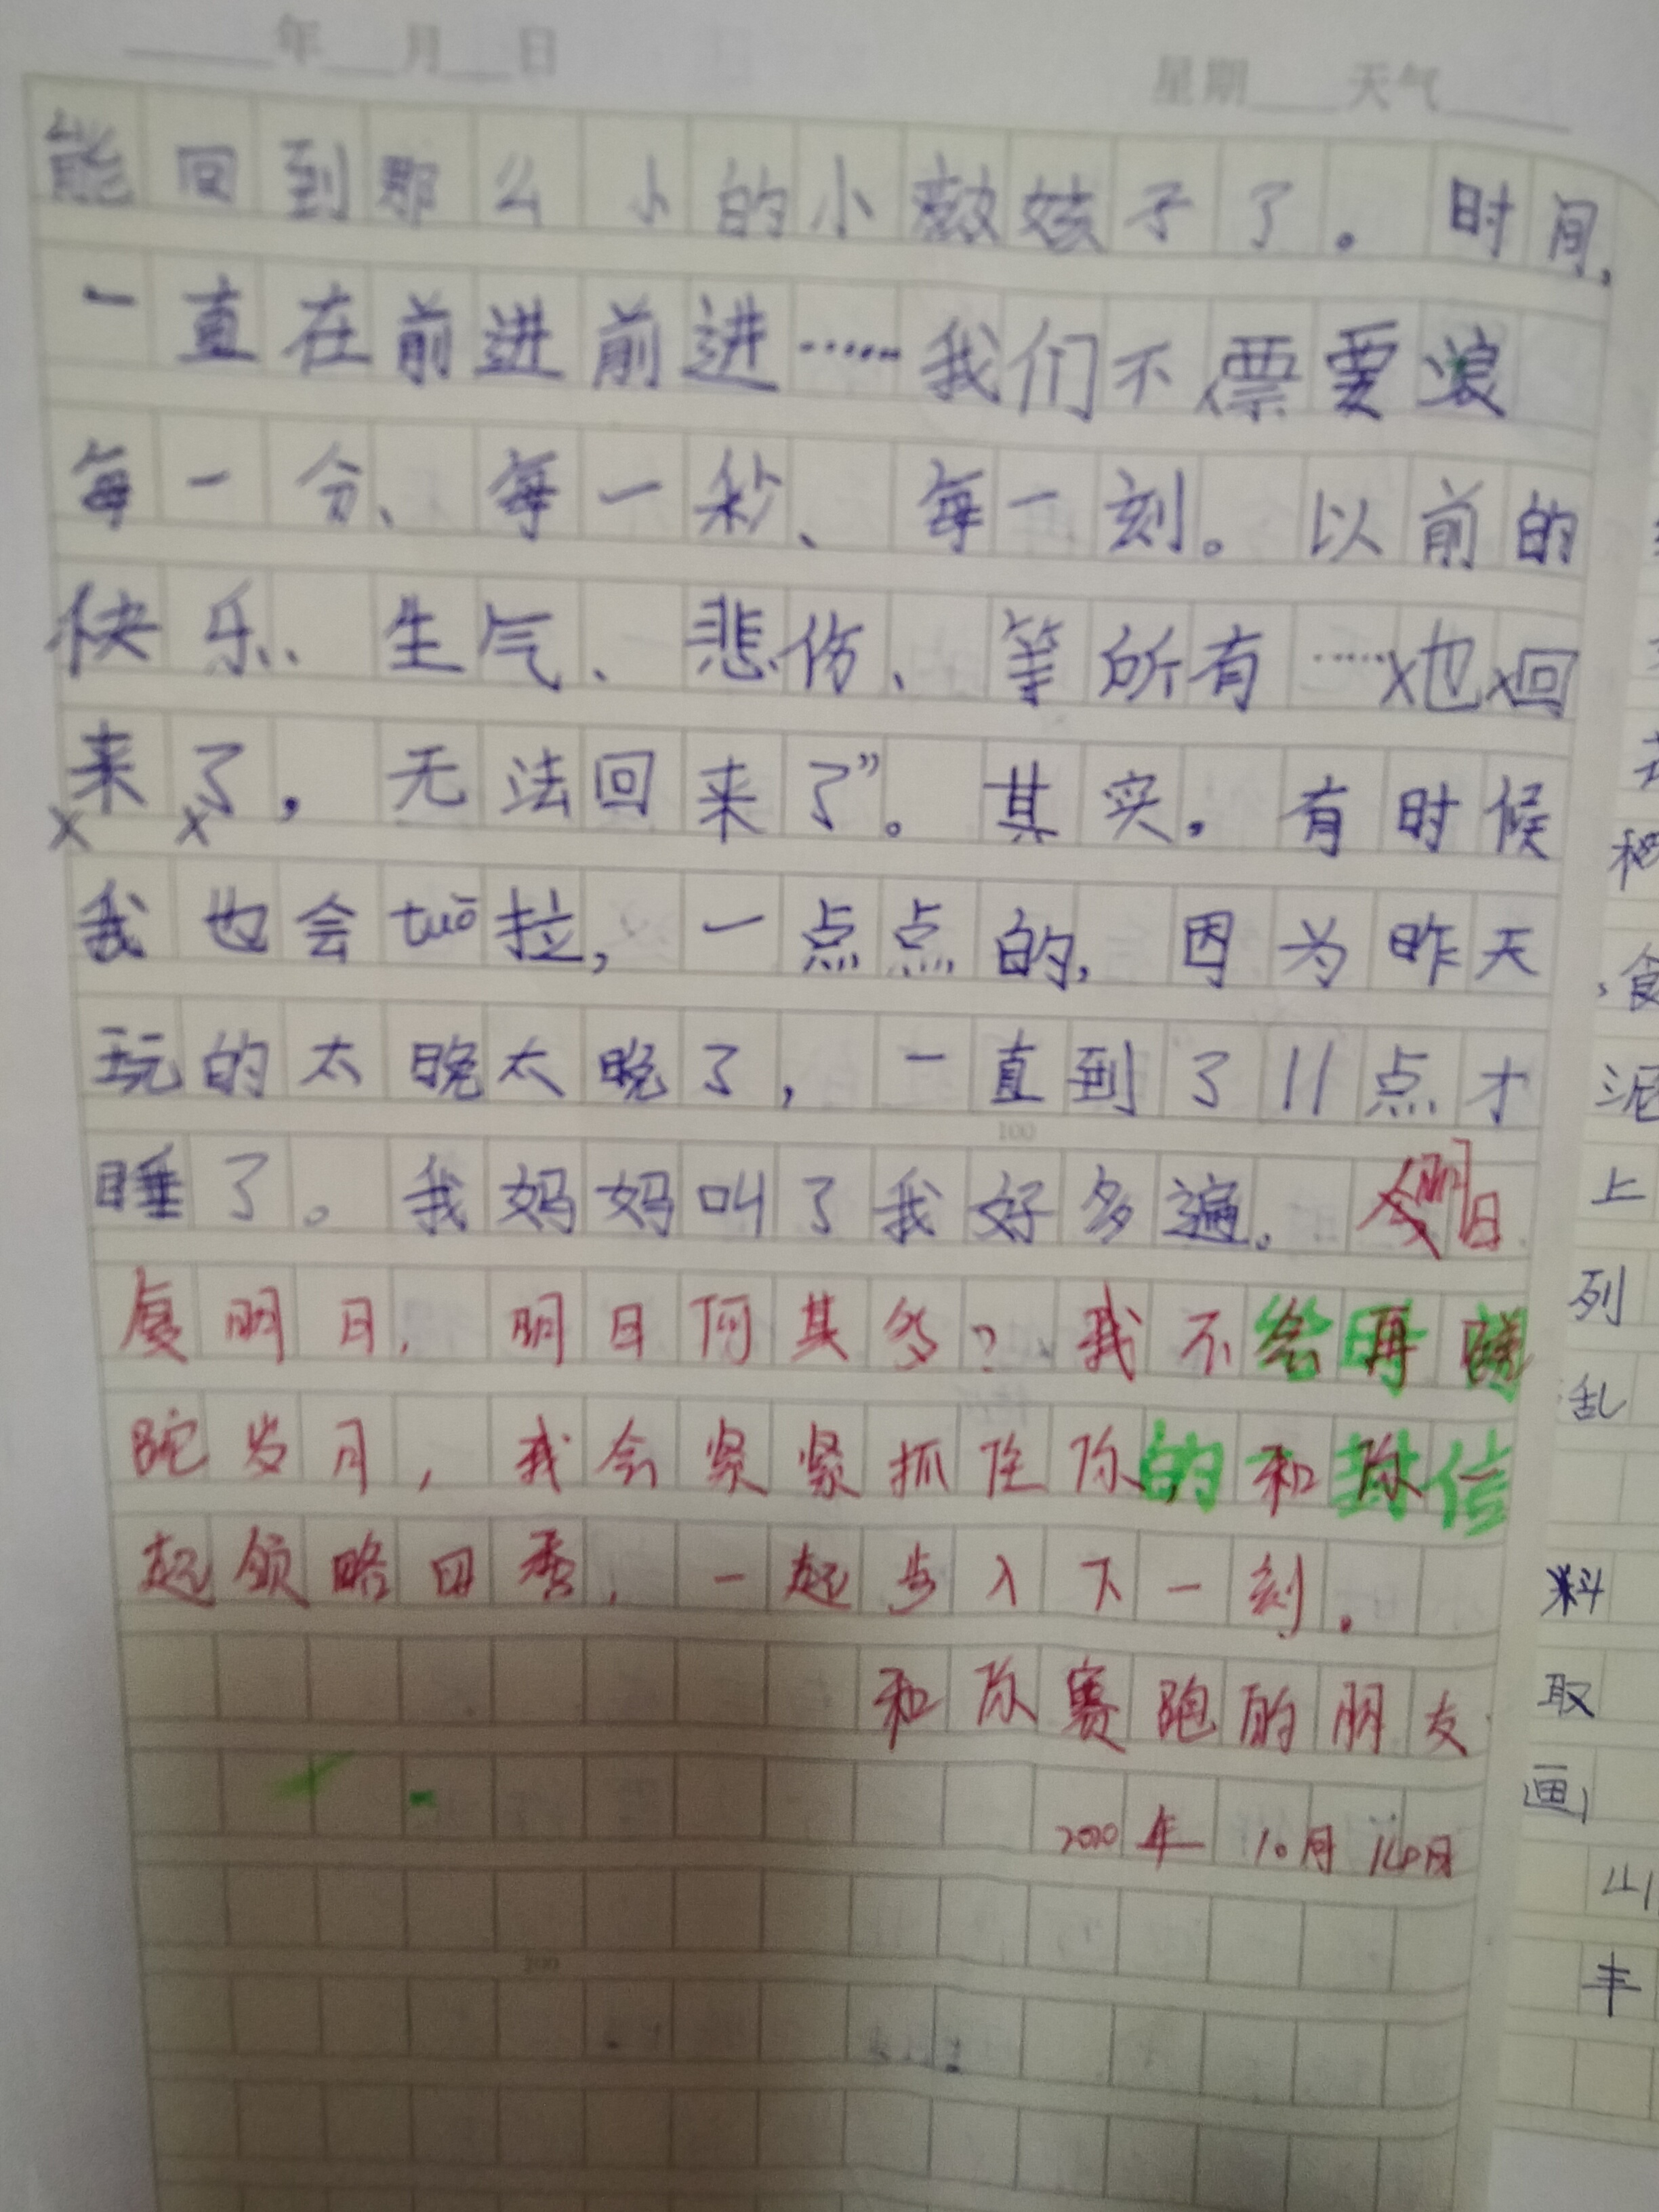 年 月 日 星期 天气
能回到那么小的小孩子了。时间,
一直在前进前进……我们不要浪
每一分、每一秒、每一刻。以前的
快乐、生气、悲伤、等所有……也回
来了，无法回来了”。其实，有时候
我也会tuō拉，一点点的，因为昨天
玩的太晚太晚了，一直到了11点才
100
睡了。我妈妈叫了我好多遍。明日
复明日，明日何其多？我不会再蹉
跎岁月，我会紧紧抓住你，和你一
起领略四季，一起步入下一刻。
和你赛跑的朋友
2020年 10月 14日
200
食
泥
上
列
乱
料
取
画
山
丰